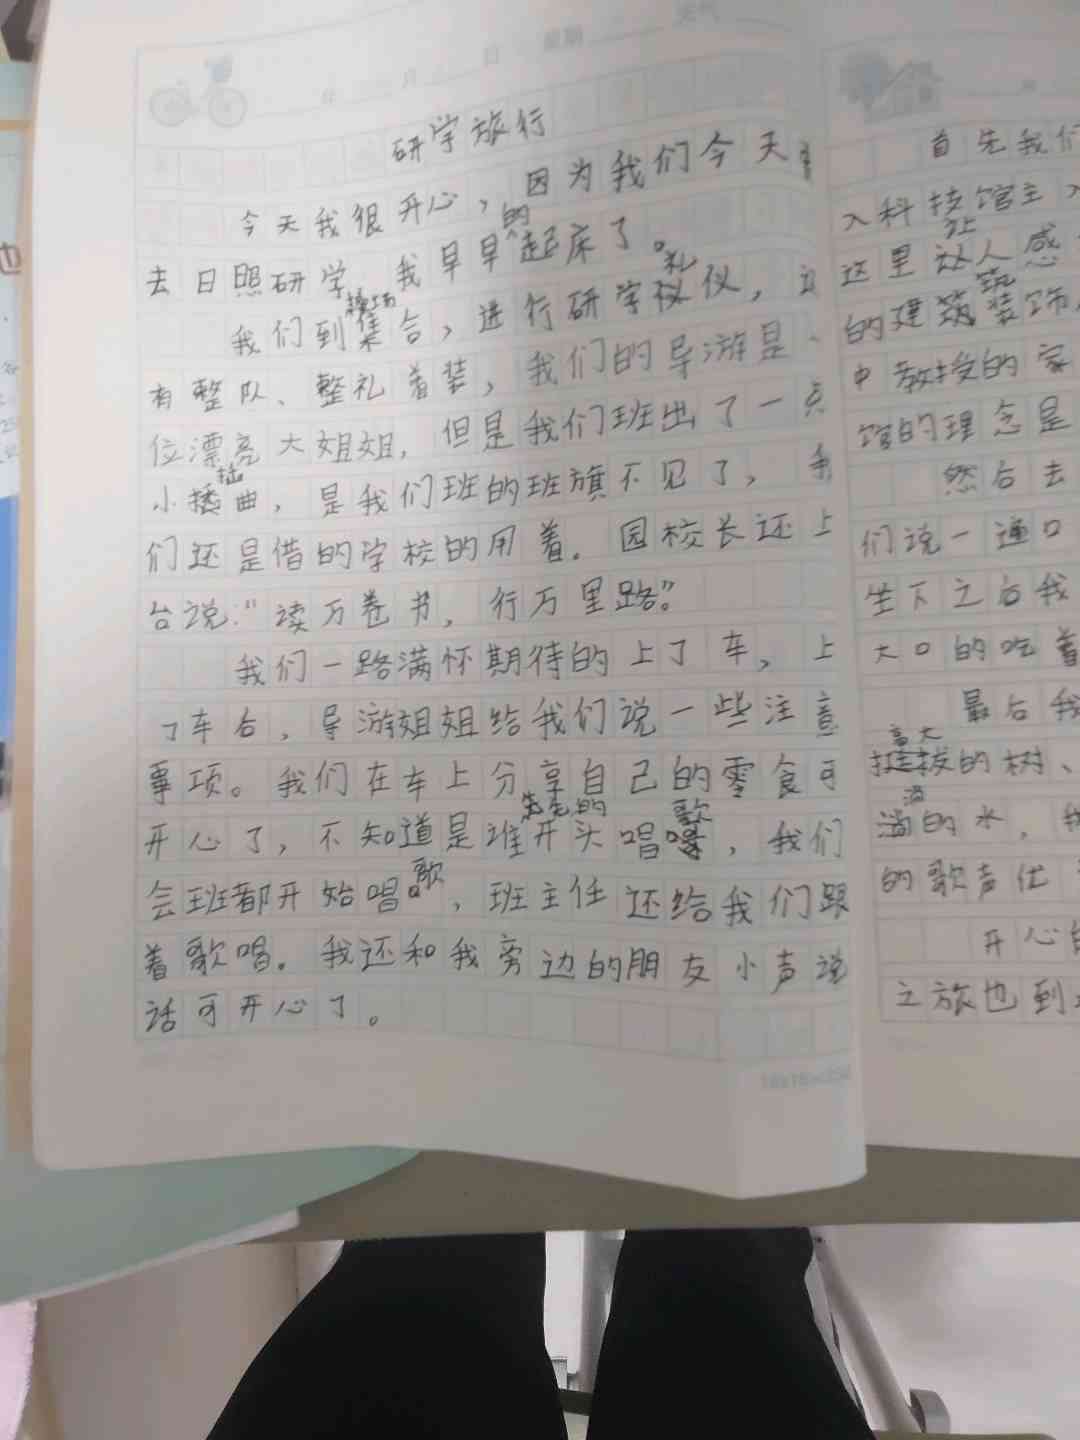 研学旅行
今天我很开心，因为我们今天
去日照研学，我早早的起床了。
我们到操场集合，进行研学礼仪，
有整队、整礼着装，我们的导游是一
位漂亮大姐姐，但是我们班出了一点
小插曲，是我们班的班旗不见了，我
们还是借的学校的用着。园校长还上
台说：“读万卷书，行万里路。”
我们一路满怀期待的上了车，上
了车后，导游姐姐给我们说一些注意
事项。我们在车上分享自己的零食可
开心了，不知道是谁先的开头唱歌，我们
会班都开始唱歌，班主任还给我们跟
着歌唱。我还和我旁边的朋友小声说
话可开心了。
首先我们
入科技馆主入
这里让人感
的建筑装饰
中教授的家
馆的理念是
然后去
们说一通口
坐下之后我
大口的吃着
最后我
高大的树、
淌的水，我
的歌声优
开心的
之旅也到